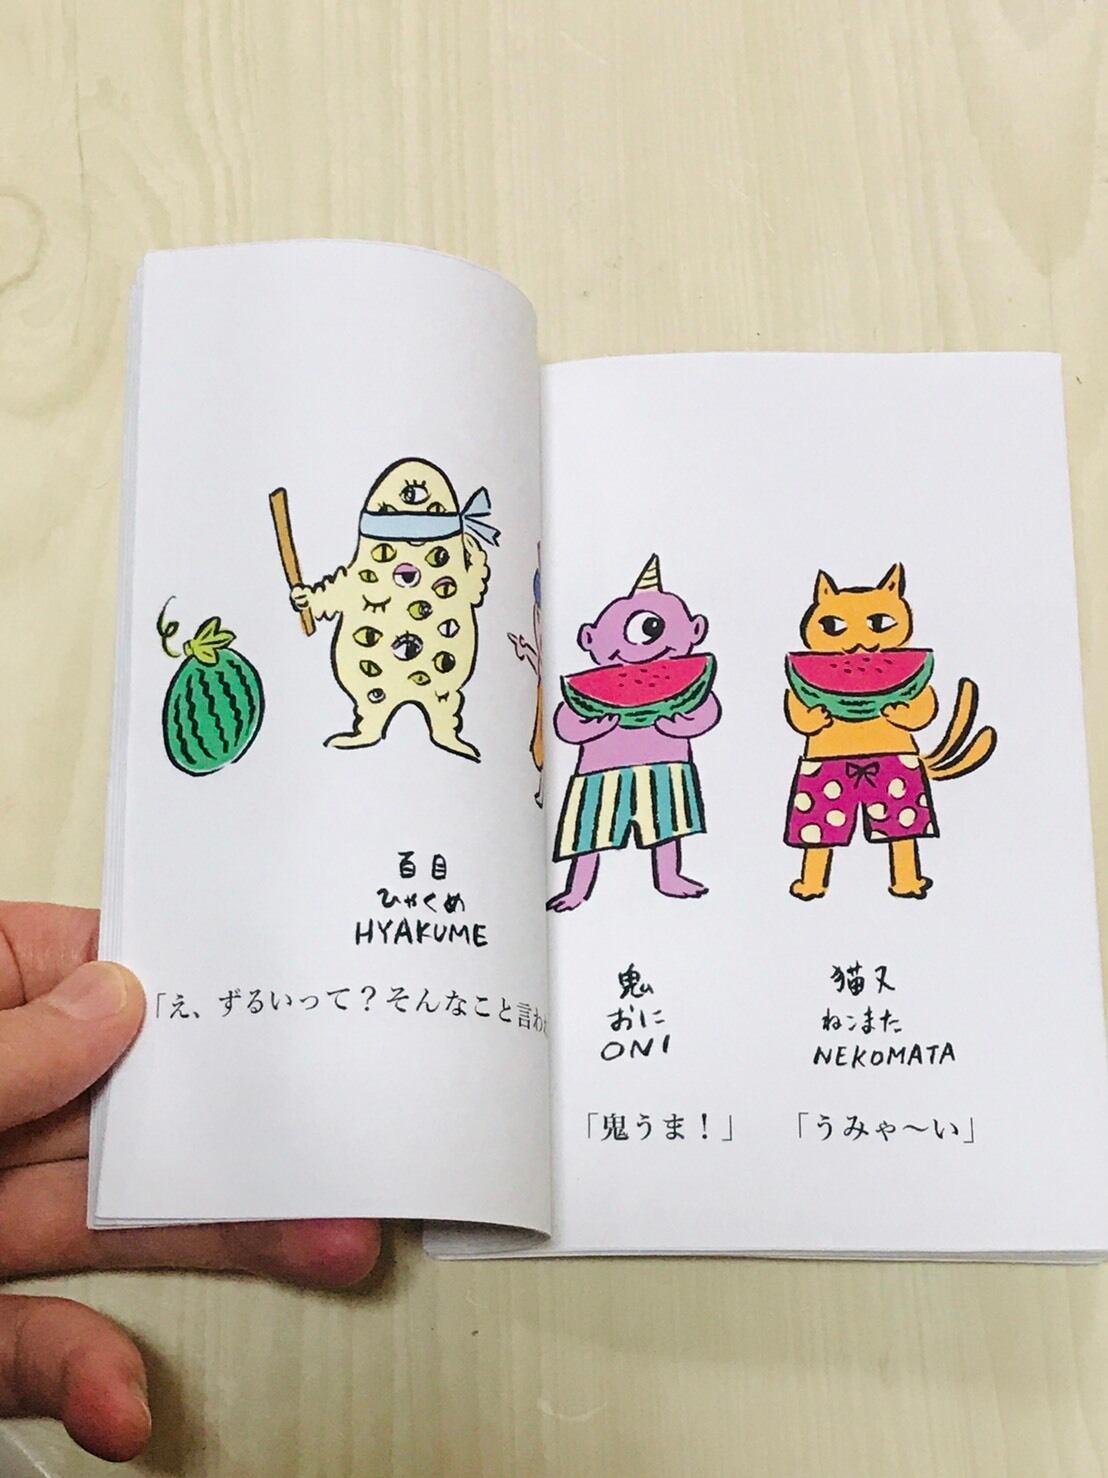 百目
ひゃくめ
HYAKUME
「え、ずるいって？そんなこと言わ
鬼
おに
ONI
「鬼うま！」
猫又
ねこまた
NEKOMATA
「うみゃ〜い」